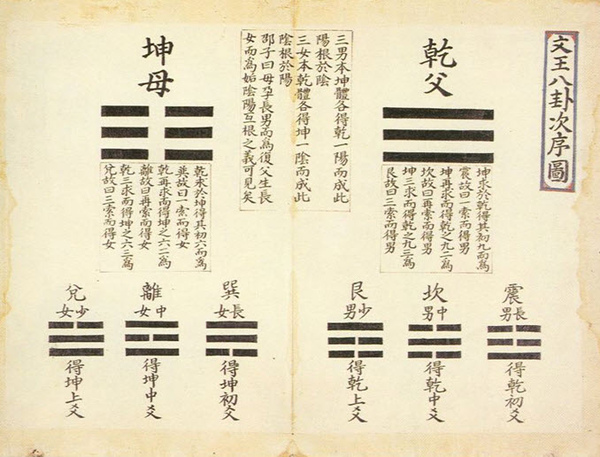 文王八卦次序圖
乾父
坤求於乾得其初九而為
震故曰一索而得男
坤再求而得乾之九二為
坎故曰再索而得男
坤三求而得乾之九三為
艮故曰三索而得男
震
長男
得乾初爻
坎
中男
得乾中爻
艮
少男
得乾上爻
三男本坤體各得乾一陽而成此
陽根於陰
三女本乾體各得坤一陰而成此
陰根於陽
邵子曰母孕長男而為復父生長
女而為姤陰陽互根之義可見矣
坤母
乾求於坤得其初六而為
巽故曰一索而得女
乾再求而得坤之六二為
離故曰再索而得女
乾三求而得坤之六三為
兌故曰三索而得女
巽
長女
得坤初爻
離
中女
得坤中爻
兌
少女
得坤上爻